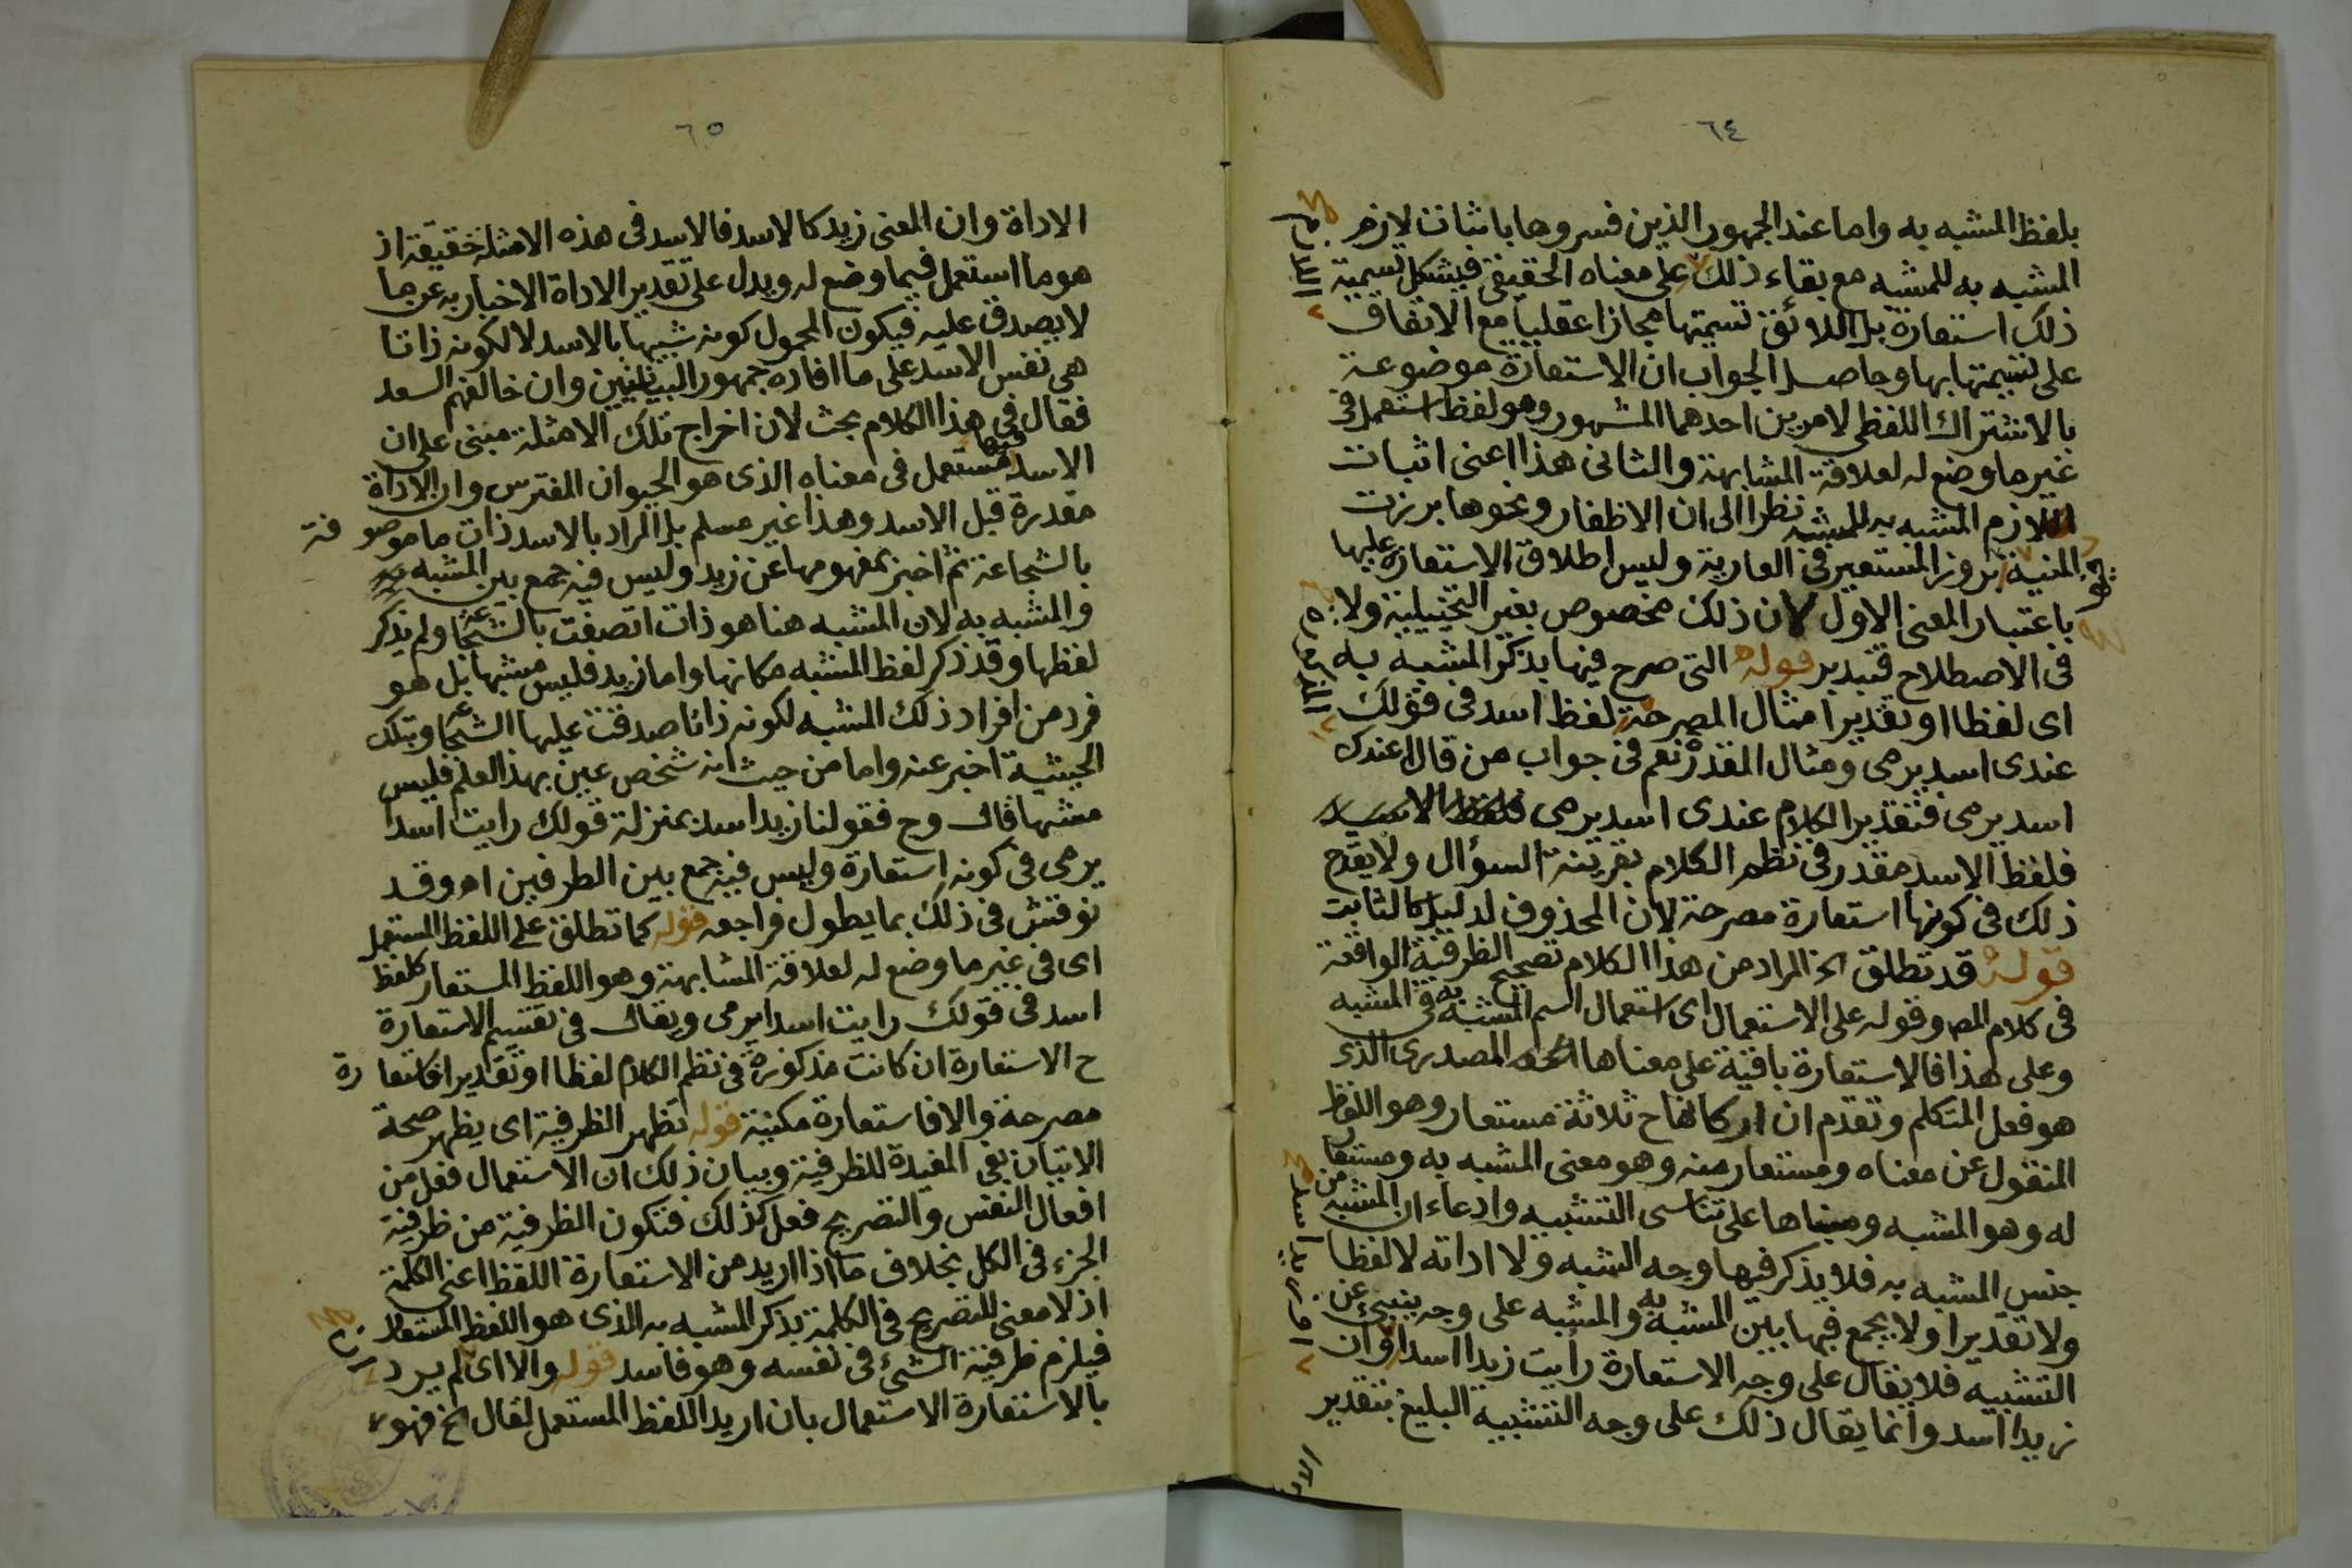 ٦٤
بلفظ المشبه به واما عند الجمهور الذين فسروها باثبات لازم
المشبه به للمشبه مع بقاء ذلك على معناه الحقيقي فيشكل تسمية
ذلك استعارة بل اللائق تسميتها مجازا عقليا مع الاتفاق
على تسميتها بها وحاصل الجواب ان الاستعارة موضوعة
بالاشتراك اللفظي لامرين احدهما المشهور وهو لفظ استعمل في
غير ما وضع له لعلاقة المشابهة والثاني هذا اعنى اثبات
اللازم المشبه به للمشبه نظرا الى ان الاظفار ونحوها برزت
المنية بروز المستعير في العارية وليس اطلاق الاستعارة عليها
باعتبار المعنى الاول لان ذلك مخصوص بغير التخييلية ولا
في الاصطلاح فتدبر قوله التى صرح فيها بذكر المشبه به
اى لفظا او تقديرا مثال المصرحة لفظ اسد في قولك
عندى اسد يرمى ومثال المقدر نعم في جواب من قال اعندك
اسد يرمى فتقدير الكلام عندى اسد يرمى فلفظ الاسد
فلفظ الاسد مقدر في نظم الكلام بقرينة السؤال ولا يقدح
ذلك في كونها استعارة مصرحة لان المحذوف لدليل كالثابت
قوله قد تطلق الخ المراد من هذا الكلام تصحيح الظرفية الواقعة
في كلام المص وقوله على الاستعمال اى استعمال اسم المشبه به في المشبه
وعلى هذا فالاستعارة باقية على معناها المصدرى الذى
هو فعل المتكلم وتقدم ان اركانها ح ثلاثة مستعار وهو اللفظ
المنقول عن معناه ومستعار منه وهو معنى المشبه به ومستعار
له وهو المشبه ومبناها على تناسى التشبيه وادعاء ان المشبه من
جنس المشبه به فلا يذكر فيها وجه الشبه ولا اداته لا لفظا
ولا تقديرا ولا يجمع فيها بين المشبه به والمشبه على وجه ينبئ عن
التشبيه فلا يقال على وجه الاستعارة رأيت زيدا اسدا وان
زيدا اسد وانما يقال ذلك على وجه التشبيه البليغ بتقدير
٦٥
الاداة وان المعنى زيد كالاسد فالاسد في هذه الامثلة حقيقة اذ
هو ما استعمل فيما وضع له ويدل على تقدير الاداة الاخبار به عن ما
لا يصدق عليه فيكون المحمول كونه شبيها بالاسد لا لكونه ذاتا
هي نفس الاسد على ما افاده جمهور البيانيين وان خالفهم السعد
فقال في هذا الكلام بحث لان اخراج تلك الامثلة مبنى على ان
الاسد فيها مستعمل في معناه الذى هو الحيوان المفترس وان الاداة
مقدرة قبل الاسد وهذا غير مسلم بل المراد بالاسد ذات ما موصوفة
بالشجاعة ثم اخبر بمفهومها عن زيد وليس فيه جمع بين المشبه
والمشبه به لان المشبه هنا هو ذات اتصفت بالشجاعة ولم يذكر
لفظها وقد ذكر لفظ المشبه مكانها واما زيد فليس مشبها بل هو
فرد من افراد ذلك المشبه لكونه ذاتا صدقت عليها الشجاعة وبتلك
الحيثية اخبر عنه واما من حيث انه شخص عين بهذا العلم فليس
مشبها قال وح فقولنا زيد اسد بمنزلة قولك رايت اسدا
يرمى في كونه استعارة وليس فيه جمع بين الطرفين اه وقد
نوقش في ذلك بما يطول فراجعه قوله كما تطلق على اللفظ المستعمل
اى في غير ما وضع له لعلاقة المشابهة وهو اللفظ المستعار كلفظ
اسد في قولك رايت اسدا يرمى ويقال في تقسيم الاستعارة
ح الاستعارة ان كانت مذكورة في نظم الكلام لفظا او تقديرا فاستعارة
مصرحة والا فاستعارة مكنية قوله تظهر الظرفية اى يظهر صحة
الاتيان بفى المفيدة للظرفية وبيان ذلك ان الاستعمال فعل من
افعال النفس والتصريح فعل كذلك فتكون الظرفية من ظرفية
الجزء في الكل بخلاف ما اذا اريد من الاستعارة اللفظ اعنى الكلمة
اذ لا معنى للتصريح في الكلمة بذكر المشبه به الذى هو اللفظ المستعار
فيلزم ظرفية الشئ في نفسه وهو فاسد قوله والا اى لم يرد
بالاستعارة الاستعمال بان اريد اللفظ المستعمل لقال الخ فهو